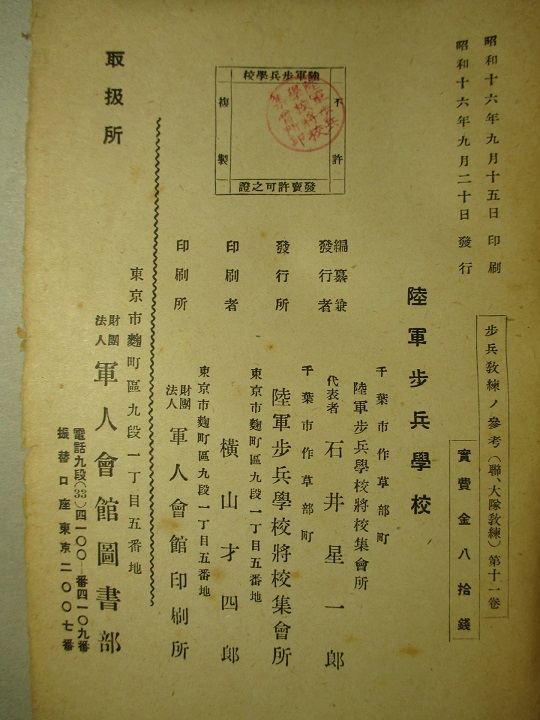 昭和十六年九月十五日 印刷
昭和十六年九月二十日 發行
步兵教練ノ參考(聯、大隊教練)第十一卷
實費金八拾錢
陸軍步兵學校
千葉市作草部町
陸軍步兵學校將校集會所
編纂兼
發行者
代表者 石井星一郞
千葉市作草部町
發行所 陸軍步兵學校將校集會所
東京市麴町區九段一丁目五番地
印刷者 橫山才四郞
東京市麴町區九段一丁目五番地
印刷所 財團法人 軍人會館印刷所
陸軍步兵學校
不許
複製
發賣許可之證
取扱所
東京市麴町區九段一丁目五番地
財團法人 軍人會館圖書部
電話九段(33)四一〇〇—番四一〇九番
振替口座東京二〇〇七番